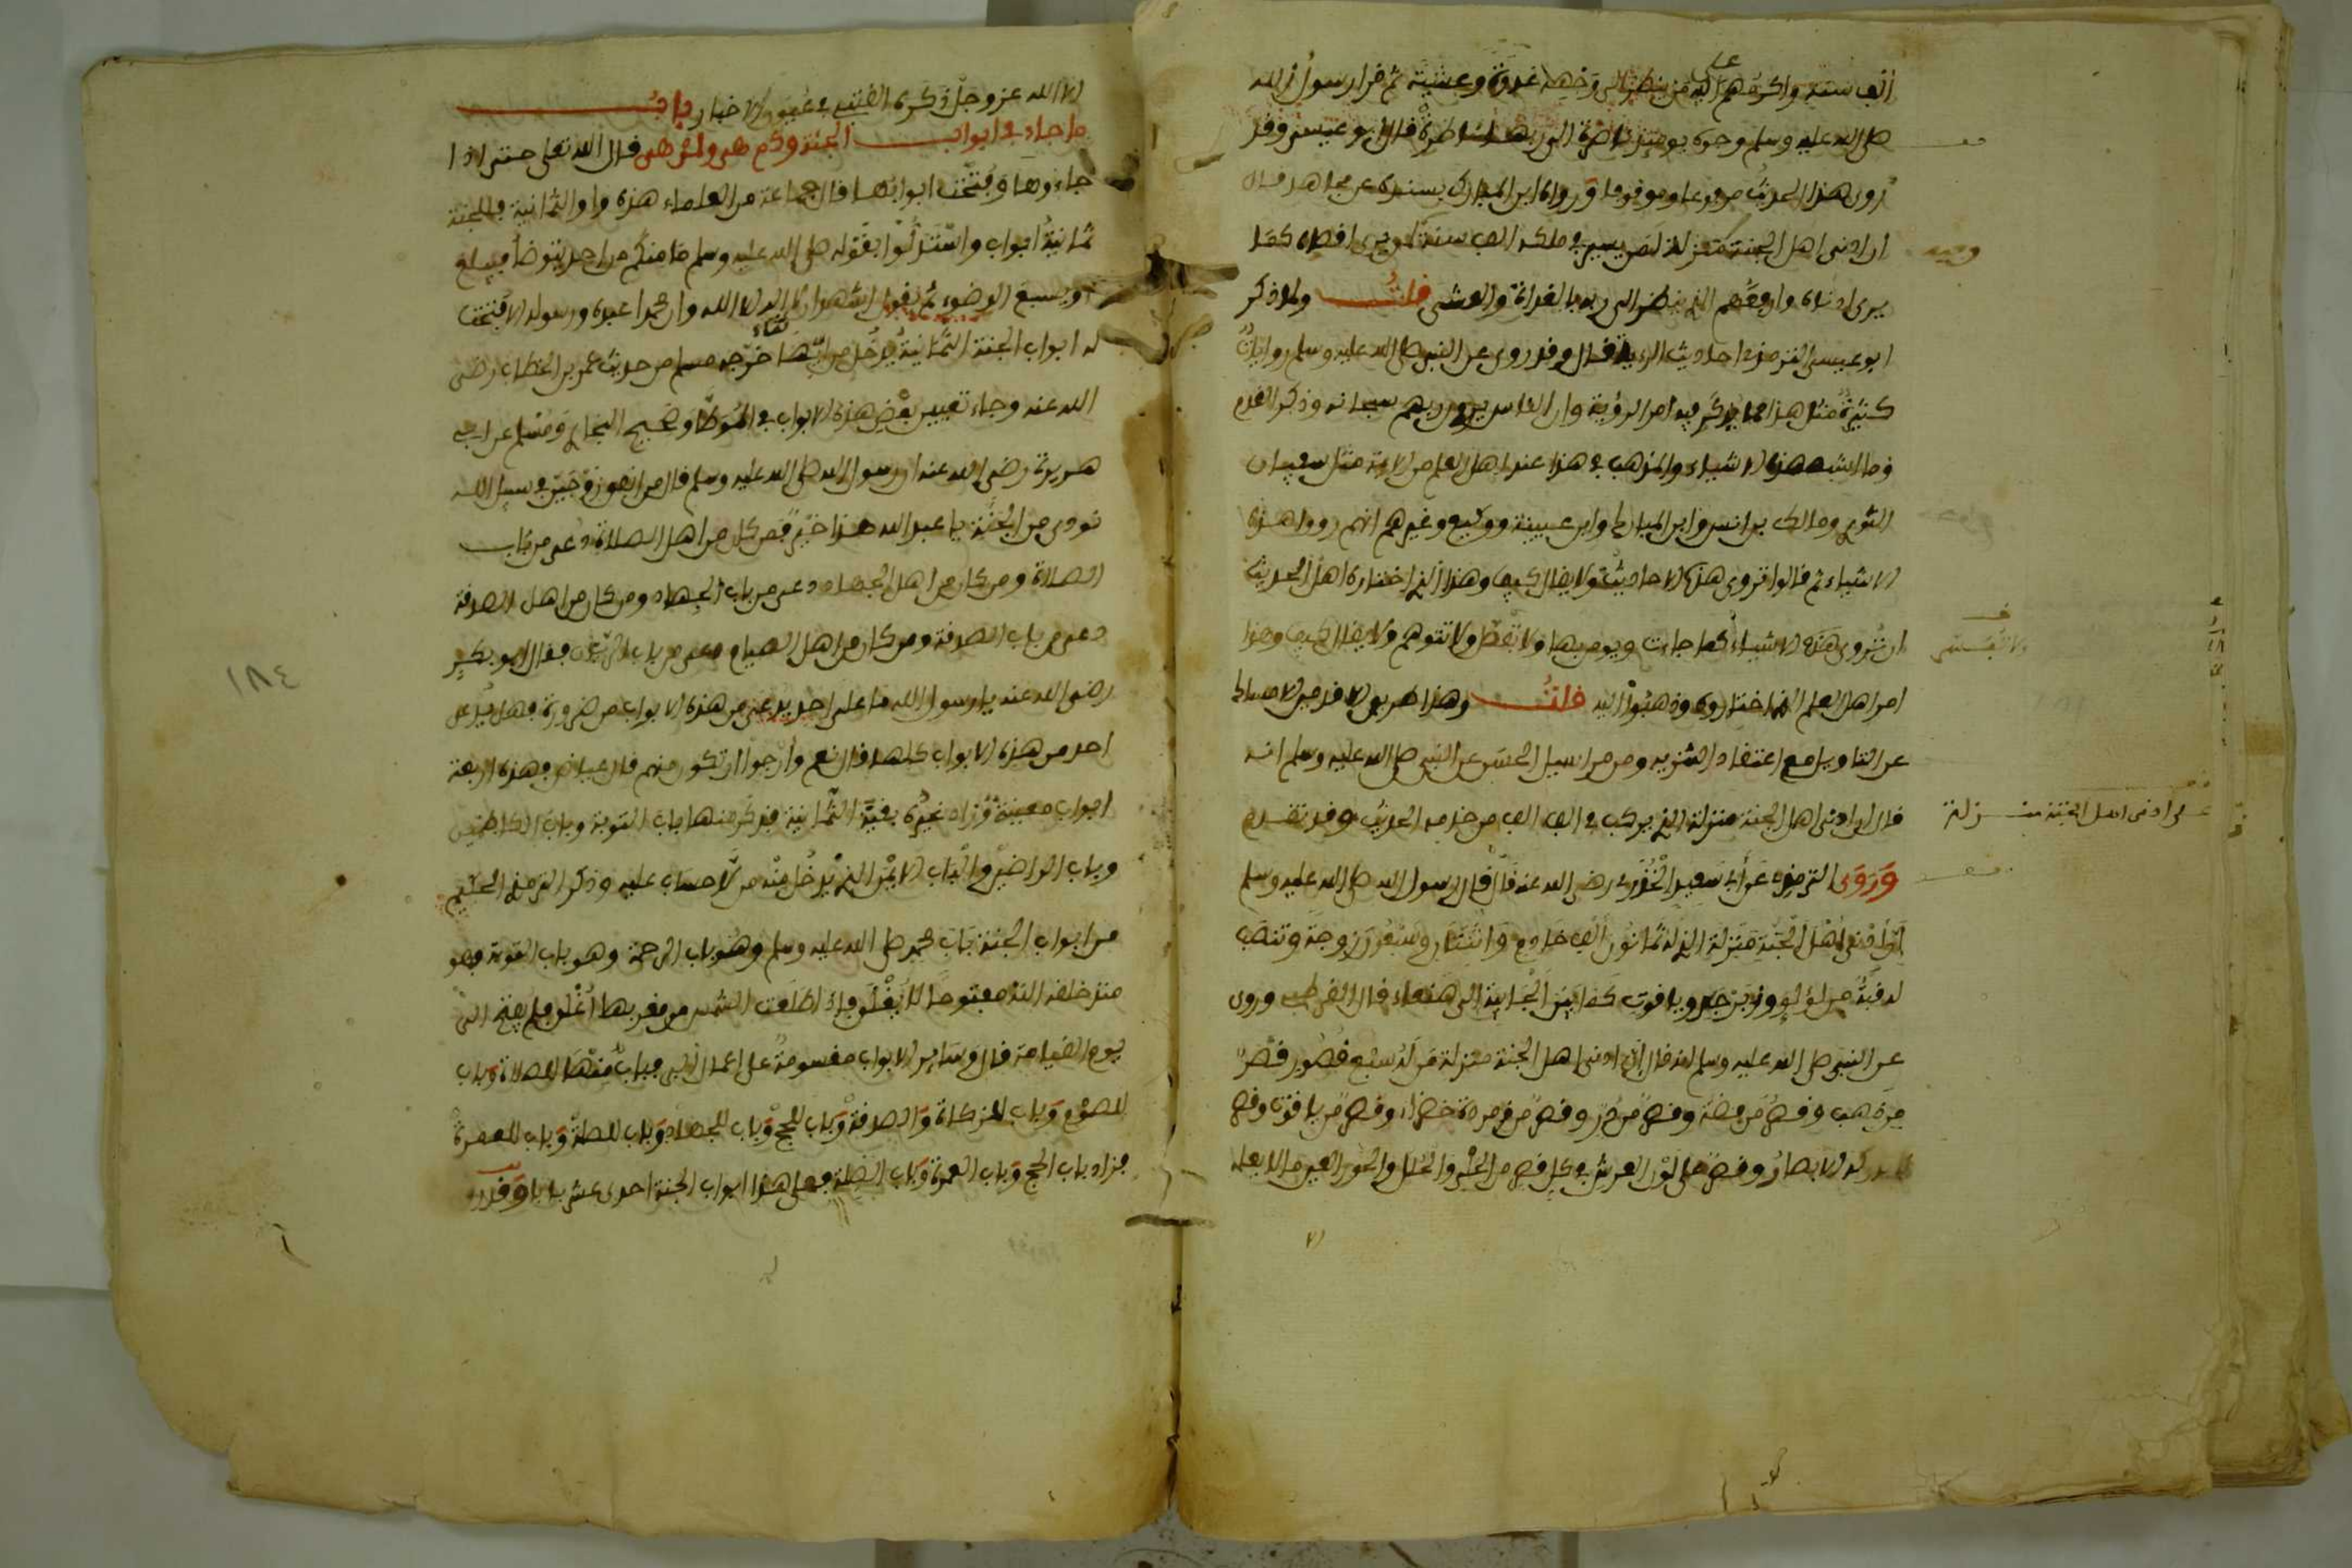 الف سنة واكرمهم على الله من ينظر الى وجهه غدوة وعشية ثم قرا رسول الله
صلى الله عليه وسلم وجوه يومئذ ناضرة الى ربها ناظرة قال ابو عيسى وقد
روى هذا الحديث مرفوعا وموقوفا ورواه ابن المبارك بسنده عن مجاهد قال
ان ادنى اهل الجنة منزلة لمن يسير في ملكه الف سنة يرى اقصاه كما
يرى ادناه وارفعهم الذي ينظر الى ربه بالغداة والعشي قلت ولما ذكر
ابو عيسى الترمذي احاديث الرءية قال وقد روي عن النبي صلى الله عليه وسلم روايات
كثيرة مثل هذا مما يذكر فيه امر الرؤية وان الناس يرون ربهم سبحانه وذكر القدم
وما اشبه هذه الاشياء والمذهب في هذا عند اهل العلم من الايمة مثل سفيان
الثوري ومالك بن انس وابن المبارك وابن عيينة ووكيع وغيرهم انهم رووا هذه
الاشياء ثم قالوا تروى هذه الاحاديث ولا يقال كيف وهذا الذي اختاره اهل الحديث
ان تروى هذه الاشياء كما جاءت ويومن بها ولا تفسر ولا تتوهم ولا يقال كيف وهذا
امر اهل العلم الذي اختاروه وذهبوا اليه قلت وهذا هو
عن التاويل مع اعتقاد التنزيه ومن مراسيل الحسن عن النبي صلى الله عليه وسلم انه
قال ان ادنى اهل الجنة منزلة الذي يركب في الف الف من خدمه الحديث وقد تقدم
وروى الترمذي عن ابي سعيد الخدري رضي الله عنه قال قال رسول الله صلى الله عليه وسلم
ادنى اهل الجنة منزلة الذي له ثمانون الف خادم واثنتان وسبعون زوجة وتنصب
له قبة من لؤلؤ وزبرجد وياقوت كما بين الجابية الى صنعاء قال وروي
عن النبي صلى الله عليه وسلم انه قال ان ادنى اهل الجنة منزلة من له سبع قصور قصر
من ذهب وقصر من فضة وقصر من در وقصر من زمردة خضراء وقصر من ياقوت وقصر
تدركه الابصار وقصر على لون العرش في كل قصر من الحلي والحلل والحور العين ما لا يعلمه
ولا تفسر
على ادنى اهل الجنة منزلة
الا الله عز وجل ذكره القتبي في عيون الاخبار باب
ما جاء في ابواب الجنة وكم هي ولمن هي قال الله تعلى حتى اذا
جاءوها وفتحت ابوابها قال جماعة من العلماء هذه واو الثمانية فللجنة
ثمانية ابواب واستدلوا بقوله صلى الله عليه وسلم ما منكم من احد يتوضأ فيبلغ
او يسبغ الوضوء ثم يقول اشهد ان لا اله الا الله وان محمدا عبده ورسوله الا فتحت
له ابواب الجنة الثمانية يدخل من ايها شاء خرجه مسلم من حديث عمر بن الخطاب رضي
الله عنه وجاء تعيين بعض هذه الابواب في الموطأ وصحيح البخاري ومسلم عن ابي
هريرة رضي الله عنه ان رسول الله صلى الله عليه وسلم قال من انفق زوجين في سبيل الله
نودي من الجنة يا عبد الله هذا خير فمن كان من اهل الصلاة دعي من باب
الصلاة ومن كان من اهل الجهاد دعي من باب الجهاد ومن كان من اهل الصدقة
دعي من باب الصدقة ومن كان من اهل الصيام دعي من باب الريان فقال ابو بكر
رضي الله عنه يا رسول الله ما على احد يدعى من هذه الابواب من ضرورة فهل يدعى
احد من هذه الابواب كلها قال نعم وارجو ان تكون منهم قال عياض فهذه اربعة
ابواب معينة وزاد غيره بقية الثمانية فذكر منها باب التوبة وباب الكاظمين
وباب الراضين والباب الايمن الذي يدخل منه من لا حساب عليه وذكر الترمذي الحكيم
من ابواب الجنة باب محمد صلى الله عليه وسلم وهو باب الرحمة وهو باب التوبة فهو
منذ خلقه الله مفتوحا لا يغلق فاذا طلعت الشمس من مغربها اغلق فلم يفتح الى
يوم القيامة قال وساير الابواب مقسومة على اعمال البر فباب منها للصلاة وباب
للصوم وباب للزكاة والصدقة وباب للحج وباب للجهاد وباب للصلة وباب للعمرة
فزاد باب الحج وباب العمرة وباب الصلة فعلى هذا ابواب الجنة احدى عشر بابا وقد
١٨٤